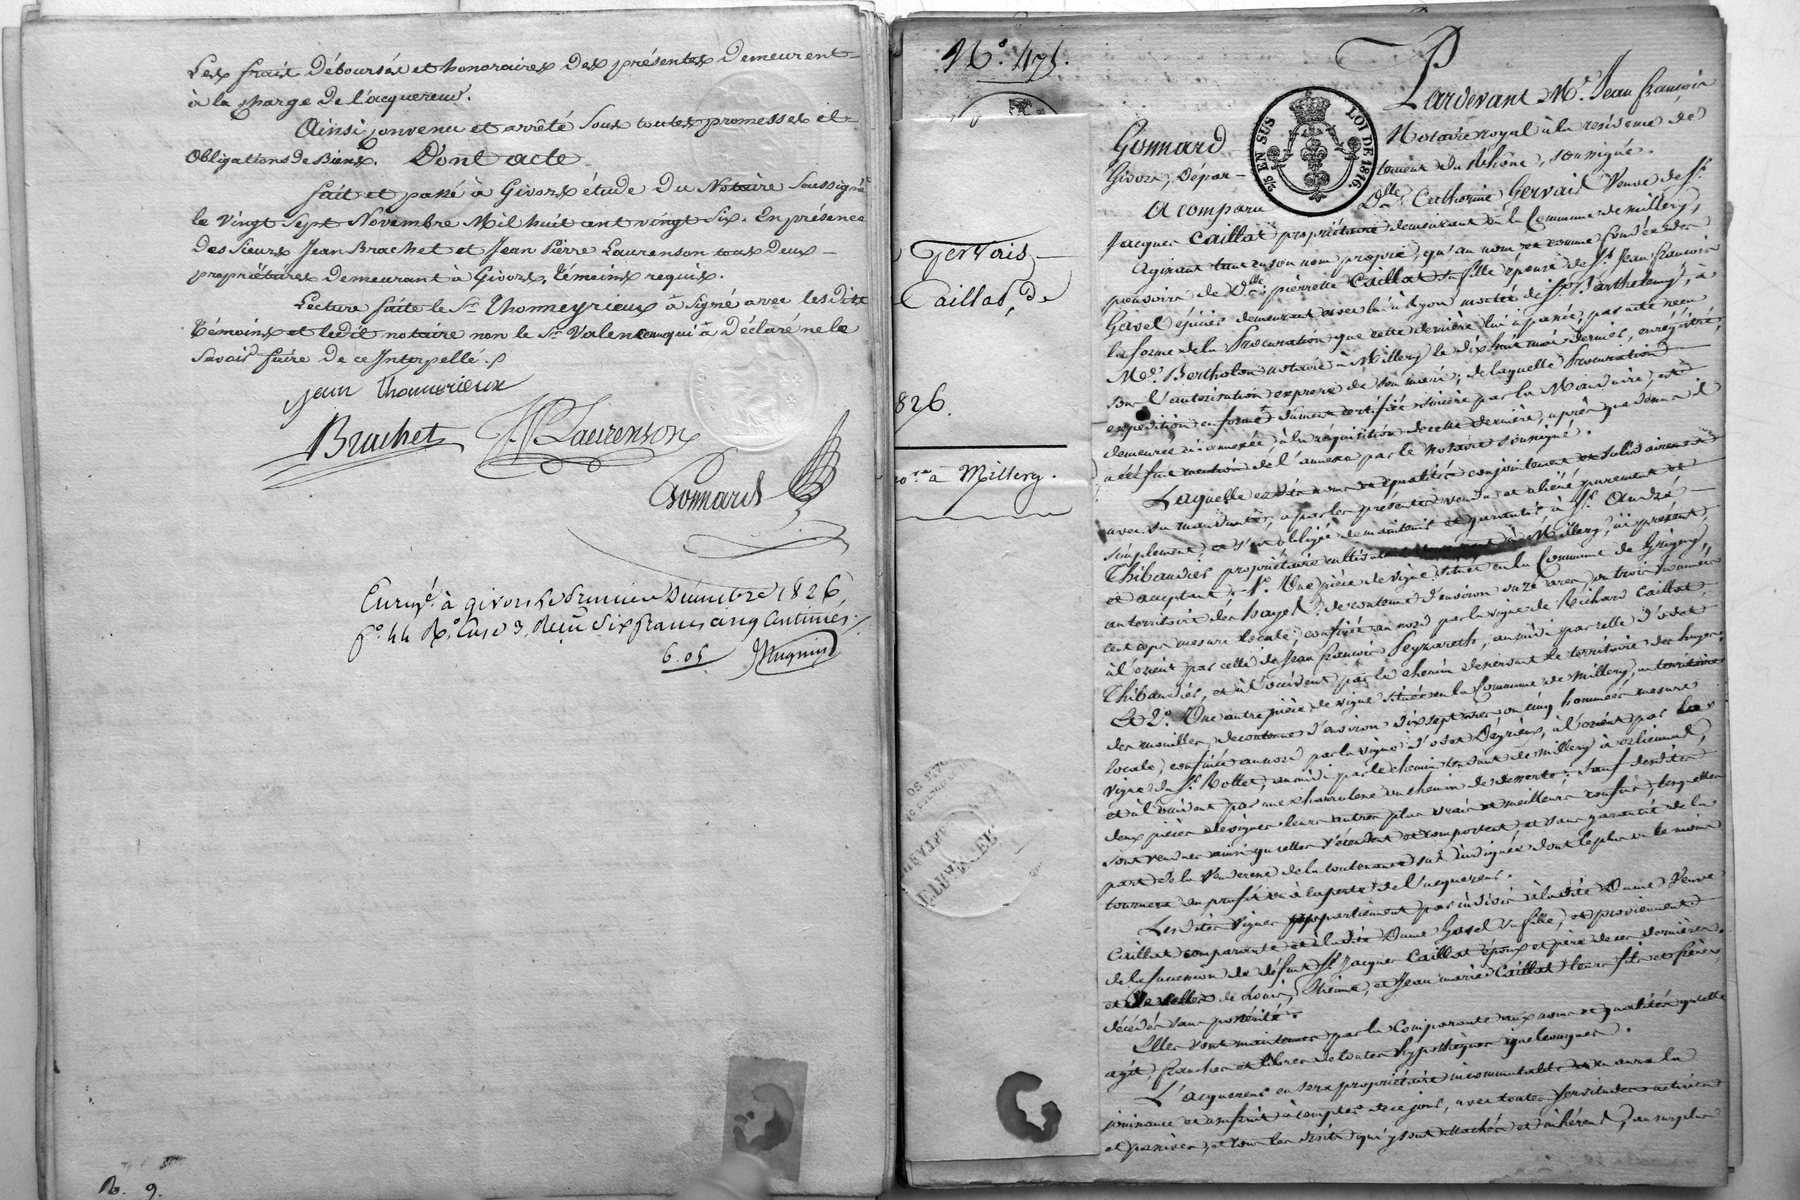 Les frais Déboursés et honoraires des présentes Demeurent
à la charge De l'acquereur.
Ainsi convenu et arrêté sous toutes promesses et
Obligations de Biens. Dont acte
fait et passé à Givors étude Du Notaire Soussigné
le Vingt Sept Novembre Mil huit cent vingt Six. En présence
Des Sieurs Jean Brachet et Jean Pierre Laurenson tous Deux
propriétaires Demeurant à Givors, Témoins requis.
Lecture faite le Sr. Thomeyrieux à Signé avec les Dits
témoins et ledit notaire non le Sr. Valen qui à Déclaré ne le
Savoir faire De ce Interpellé.
jean Thomerieux
Brachet JP Laurenson
Gonnard
Enregé. à givors le premier Décembre 1826,
fo. 44 Ro. Case 3, Reçu Six francs cinq Centimes.
6.05
No. 475.
Gervais
Caillat, De
826.
à Millery.
Pardevant Me. Jean françois
Gonnard Notaire royal à la residence de
Givors, Dépar- tement du Rhône, soussigné.
25 EN SUS LOI DE 1816.
A comparu Dlle. Catherine Gervais Veuve de Sr.
Jacques Caillat propriétaire demeurant en la Commune de millery,
Agissant tant en son nom propre, qu'au nom et comme fondée de
pouvoirs de Dlle. pierrette Caillat sa fille épouse de Sr. Jean françois
Gavel épicier demeurant avec lui à Lyon montée de St. Barthelemy, à
la forme de la Procuration que cette dernière lui à passée, par acte reçu
Me. Bertholon notaire à Millery le dix huit mai dernier, enregistré,
sous l'autorisation expresse de son mari; de laquelle Procuration
expedition en forme dûment certifiée sincère par la Mandataire, est
demeurée ci annexée à la réquisition de cette dernière, après que dessus il
a été fait mention de l'annexe par le notaire soussigné.
Laquelle esdits noms et qualités conjointement et solidairement
avec sa mandante, a par les présentes vendu et aliéné purement et
simplement, et s'est obligée de maintenir et garantir à Sr. André
Thibaudier propriétaire cultivateur à Millery, ci présent
et acceptant, 1°. Une pièce de vigne située en la Commune de Grigny,
au territoire des hayes, de contenue d'environ onze ares, ou trois hommées
cent ceps mesure locale, confinée au nord par la vigne de Richard Caillat,
à l'orient par celle de Jean françois Peyzareth, au midi par celle d'odet
Thibaudier, et à l'occident par le chemin desservant le territoire des hayes.
Et 2°. Une autre pièce de vigne située en la Commune de Millery, au territoire
des mouilles, de contenue d'environ dix sept ares ou cinq hommées mesure
locale, confinée au nord par la vigne d'odet Deyrieux, à l'orient par la
vigne du Sr. Rollet, au midi par le chemin tendant de millery à orlienas,
et à l'occident par une charrulene ou chemin de desserte; sauf desdites
deux pièces de vignes leurs autres plus vrais et meilleurs confins, lesquelles
sont vendues ainsi qu'elles s'étendent et comportent, et sans garantie de la
part de la Venderesse de la contenance sus indiquée dont le plus ou le moins
tournera au profit ou à la perte de l'acquereur.
Lesdites vignes appartiennent par indivis à ladite Dame Veuve
Caillat comparante et à ladite Dame Gavel sa fille, et proviennent
de la succession de défunt Sr. Jacques Caillat époux et père de ces dernières
et de celles de Louis, Etienne, et Jean marie Caillat leurs fils et frères,
décédés sans postérité.
Elles sont maintenues par la Comparante aux noms et qualités qu'elle
agit, franches et libres de toutes hypothèques quelconques.
L'acquereur en sera propriétaire incommutable et en aura la
jouissance et usufruit à compter de ce jour, avec toutes servitudes actives
et passives, et tous les droits qui y sont attachés et inhérents, au surplus